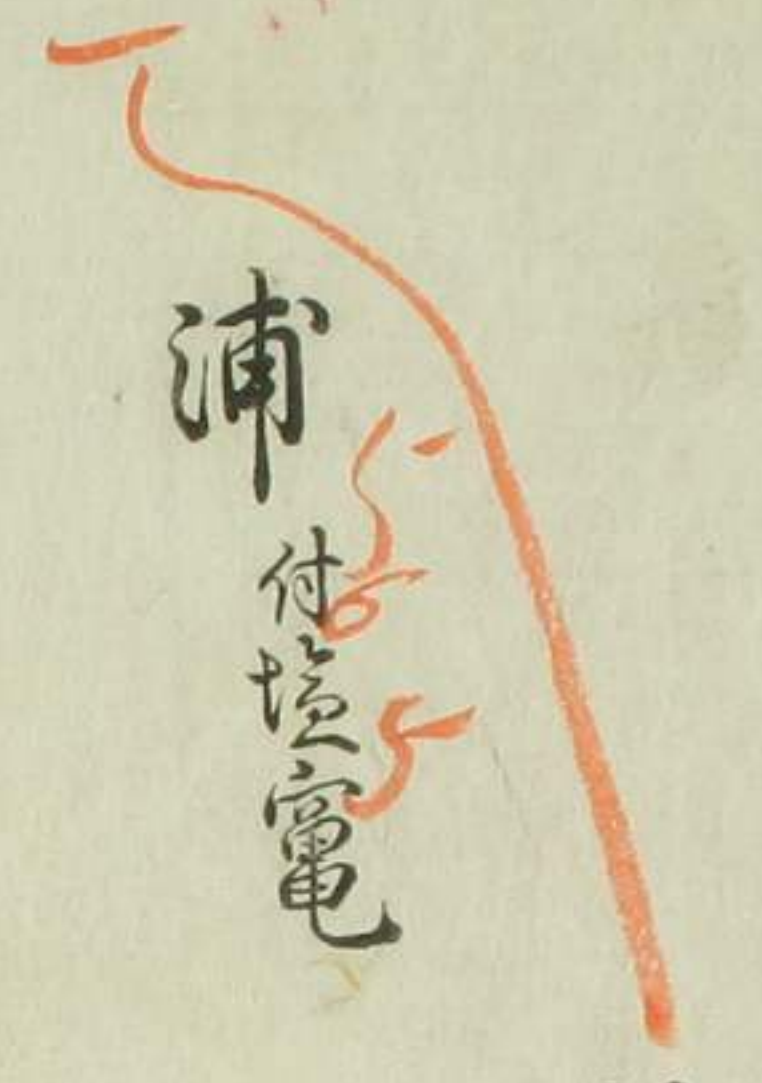 浦付塩竃